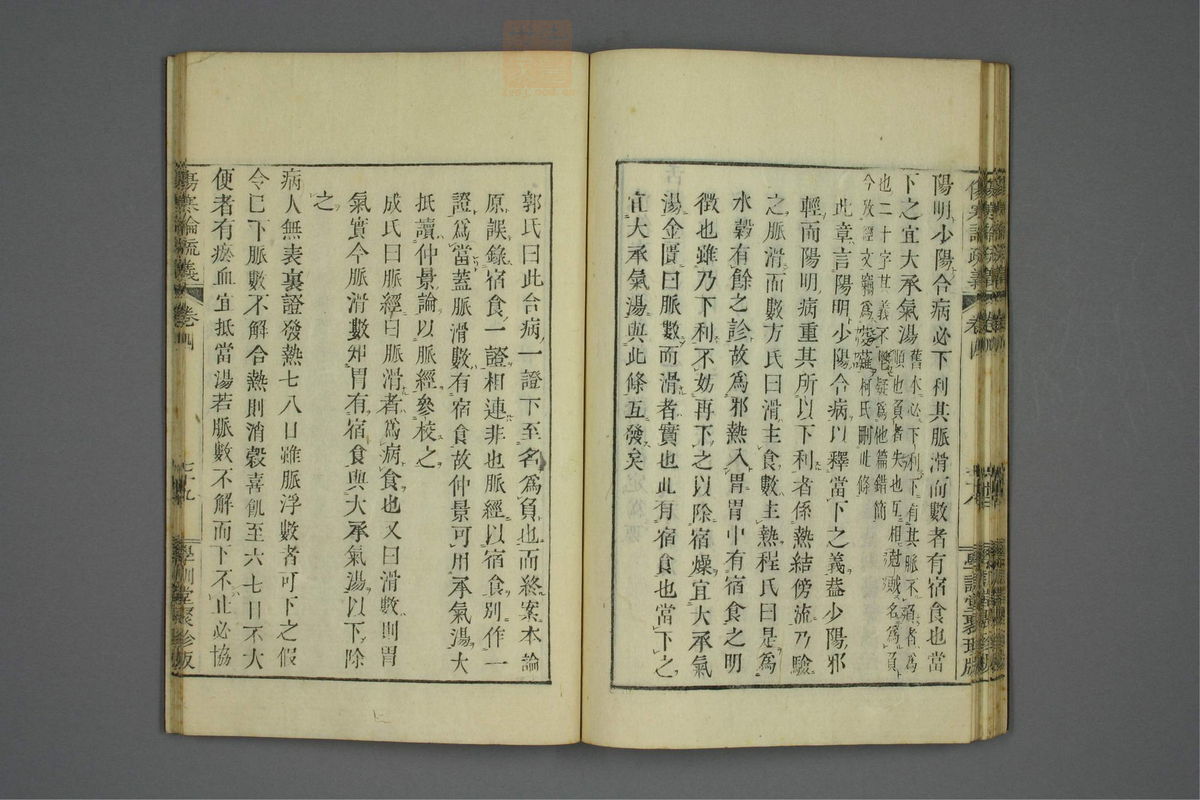 陽明少陽合病必下利其脈滑而數者有宿食也當
下之宜大承氣湯舊本必下利下有其脈不負者爲
順也負者失也互相尅賊名爲負
也二十字其義不
今攷經文
柯氏刪此條
此章言陽明少陽合病以釋當下之義葢少陽邪
輕而陽明病重其所以下利者係熱結傍流乃驗
之脈滑而數方氏曰滑主食數主熱程氏曰是爲
水穀有餘之診故爲邪熱入胃胃中有宿食之明
徴也雖乃下利不妨再下之以除宿燥宜大承氣
湯金匱曰脈數而滑者實也此有宿食也當下之
宜大承氣湯與此條互發矣
傷寒論疏義
卷四
學訓堂聚珍版
郭氏曰此合病一證下至名爲負也而終案本論
原誤錄宿食一證相連非也脈經以宿食別作一
證爲當蓋脈滑數有宿食故仲景可用承氣湯大
抵讀仲景論以脈經參校之
成氏曰脈經曰脈滑者爲病食也又曰滑數則胃
氣實今脈滑數知胃有宿食與大承氣湯以下除
之
病人無表裏證發熱七八日雖脈浮數者可下之假
令已下脈數不解合熱則消穀喜飢至六七日不大
便者有瘀血宜抵當湯若脈數不解而下不止必協
傷寒論疏義
卷四
七十九
學訓堂聚珍版